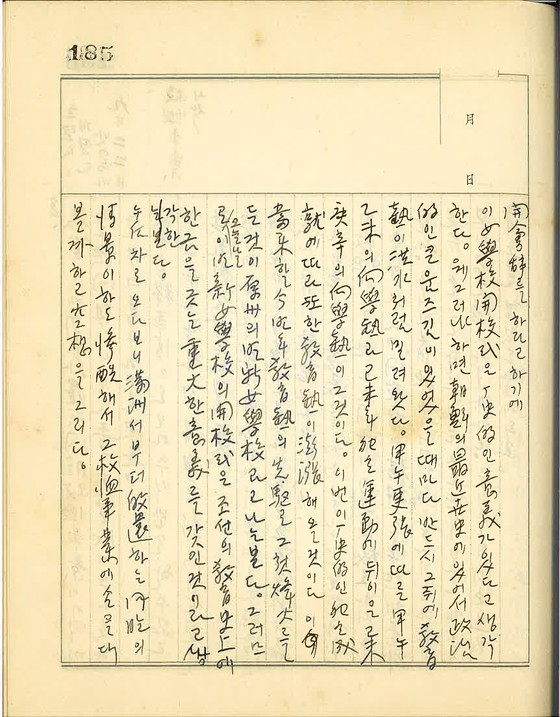 185
月
日
開會辭를 하라고 하기에
이 女學校 開校式은 歷史的인 意義가 있다고 생각
한다. 웨그러냐 하면 朝鮮의 最近世史에 있어서 政治
的인 큰 움즈김이 있었을 때마다 반드시 그 뒤에 敎育
熱이 洪水처럼 밀려왔다. 甲午更張에 따르는 甲午
乙未의 向學熱과 己未 獨立運動에 뒤이은 己未
庚申의 向學熱이 그것이다. 이번 이 歷史的인 獨立
就에 따라 또한 敎育熱이 澎漲해 올 것이다 이
當來할 今後의 敎育熱의 先驅로 그 첫 烽火를
든 것이 原州의 女學校라고 나는 본다. 그럼으
로 오늘날 이 女學校의 開校式은 조선의 敎育史上에
한 금을 긋는 重大한 意義를 갖인 것이라고 생
각한다.
눈
차로 오다 보니 滿洲에서부터 歸還하는 同胞의
情景이 하도 慘酷해서 그 救恤事業에 손을 대
볼까 하고 空想을 그리다.